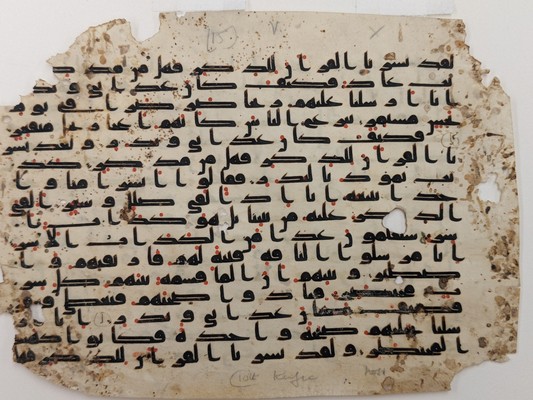 لقد يسرنا القران للذكر فهل من مدكر كذ
بت عاد فكيف كان عذابي ونذر
انا ارسلنا عليهم ريحا صرصرا في يوم
نحس مستمر تنزع الناس كانهم اعجاز نخل منقعر
فكيف كان عذابي ونذر ولقد يسر
نا القران للذكر فهل من مدكر كذبت
ثمود بالنذر فقالوا ابشرا منا و
احدا نتبعه انا اذا لفي ضلل وسعر القي
الذكر عليه من بيننا بل هو كذاب ا
شر سيعلمون غدا من الكذاب الاشر
انا مرسلوا الناقة فتنة لهم فارتقبهم وا
صطبر ونبئهم ان الما قسمة بينهم كل شر
ب محتضر فنادوا صاحبهم فتعاطى فعقر
فكيف كان عذابي ونذر انا ار
سلنا عليهم صيحة واحدة فكانوا كهشيم
المحتظر ولقد يسرنا القران للذكر فهل